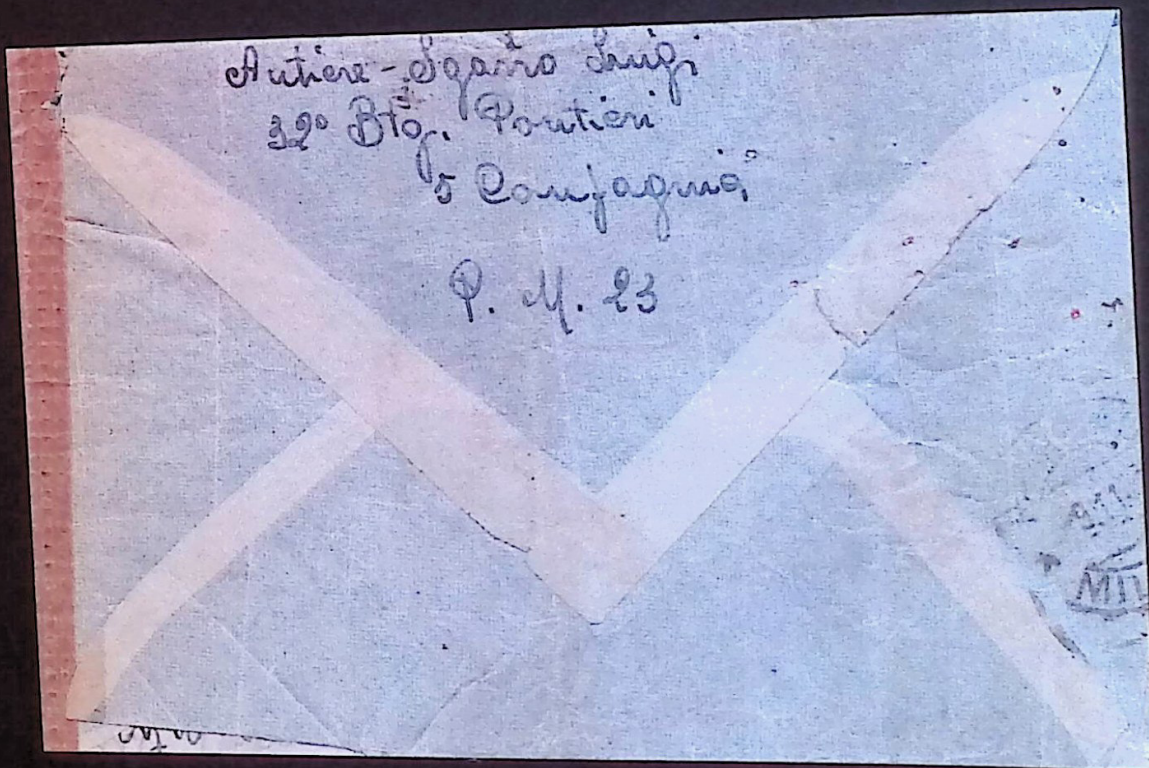 Autiere - Sgarro Luigi
32° Btg. Pontieri
5ª Compagnia
P. M. 23